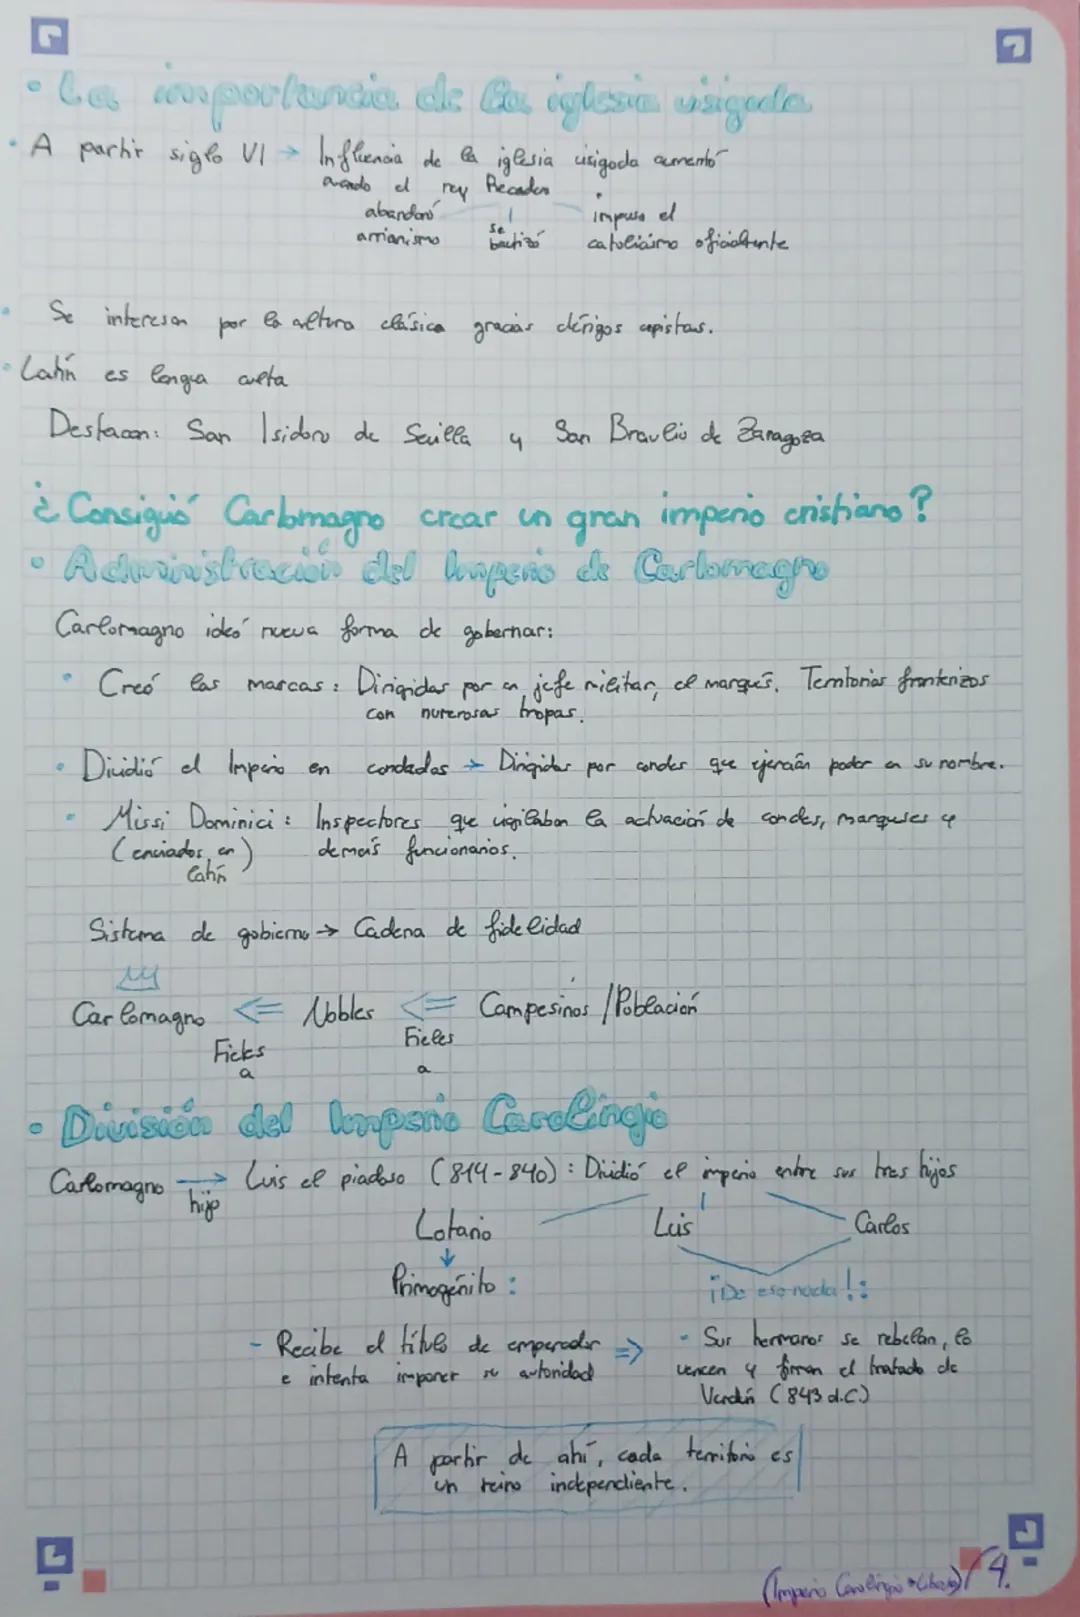 • La importancia de la iglesia visigoda
• A partir siglo VI → Influencia de la iglesia visigoda aumentó
cuando el rey Recadero
abandonó arrianismo
se bautizó
impuso el catolicismo oficialmente
• Se interesan por la cultura clásica gracias clérigos copistas.
• Latín es lengua culta
Destacan: San Isidoro de Sevilla y San Braulio de Zaragoza
¿Consiguió Carlomagno crear un gran imperio cristiano?
• Administración del Imperio de Carlomagno
Carlomagno ideó nueva forma de gobernar:
• Creó las marcas: Dirigidas por un jefe militar, el marqués. Territorios fronterizos
con numerosas tropas.
• Dividió el Imperio en condados → Dirigidos por condes que ejercían poder en su nombre.
• Missi Dominici: Inspectores que vigilaban la actuación de condes, marqueses y
(enviados, en latín) demás funcionarios.
Sistema de gobierno → Cadena de fidelidad
Carlomagno <= Nobles <= Campesinos / Población
Fieles a
Fieles a
• División del Imperio Carolingio
Carlomagno → hijo Luis el piadoso (814-840): Dividió el imperio entre sus tres hijos
Lotario Luis Carlos
↓
Primogénito: ¡De eso nada!:
- Recibe el título de emperador => - Sus hermanos se rebelan, lo
e intenta imponer su autoridad vencen y firman el tratado de
Verdún (843 d.C.)
A partir de ahí, cada territorio es
un reino independiente.
(Imperio Carolingio / 4.